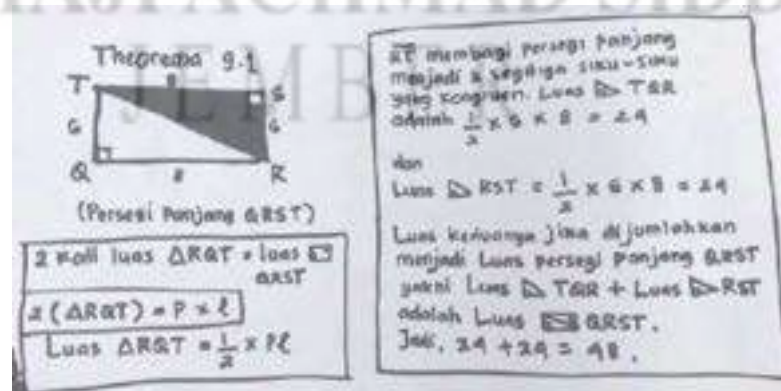 JEMB
Theorema 9.1
T 8 S
6 6
Q 8 R
(Persegi Panjang QRST)
2 kali luas △RQT = luas
QRST
2 (△RQT) = P × ℓ
Luas △RQT = 1/2 × Pℓ
RT membagi persegi panjang
menjadi 2 segitiga siku-siku
yang kongruen. Luas △ TQR
adalah 1/2 × 6 × 8 = 24
dan
Luas △ RST = 1/2 × 6 × 8 = 24
Luas keduanya jika dijumlahkan
menjadi Luas persegi panjang QRST
yakni Luas △ TQR + Luas △ RST
adalah Luas QRST.
Jadi, 24 + 24 = 48.